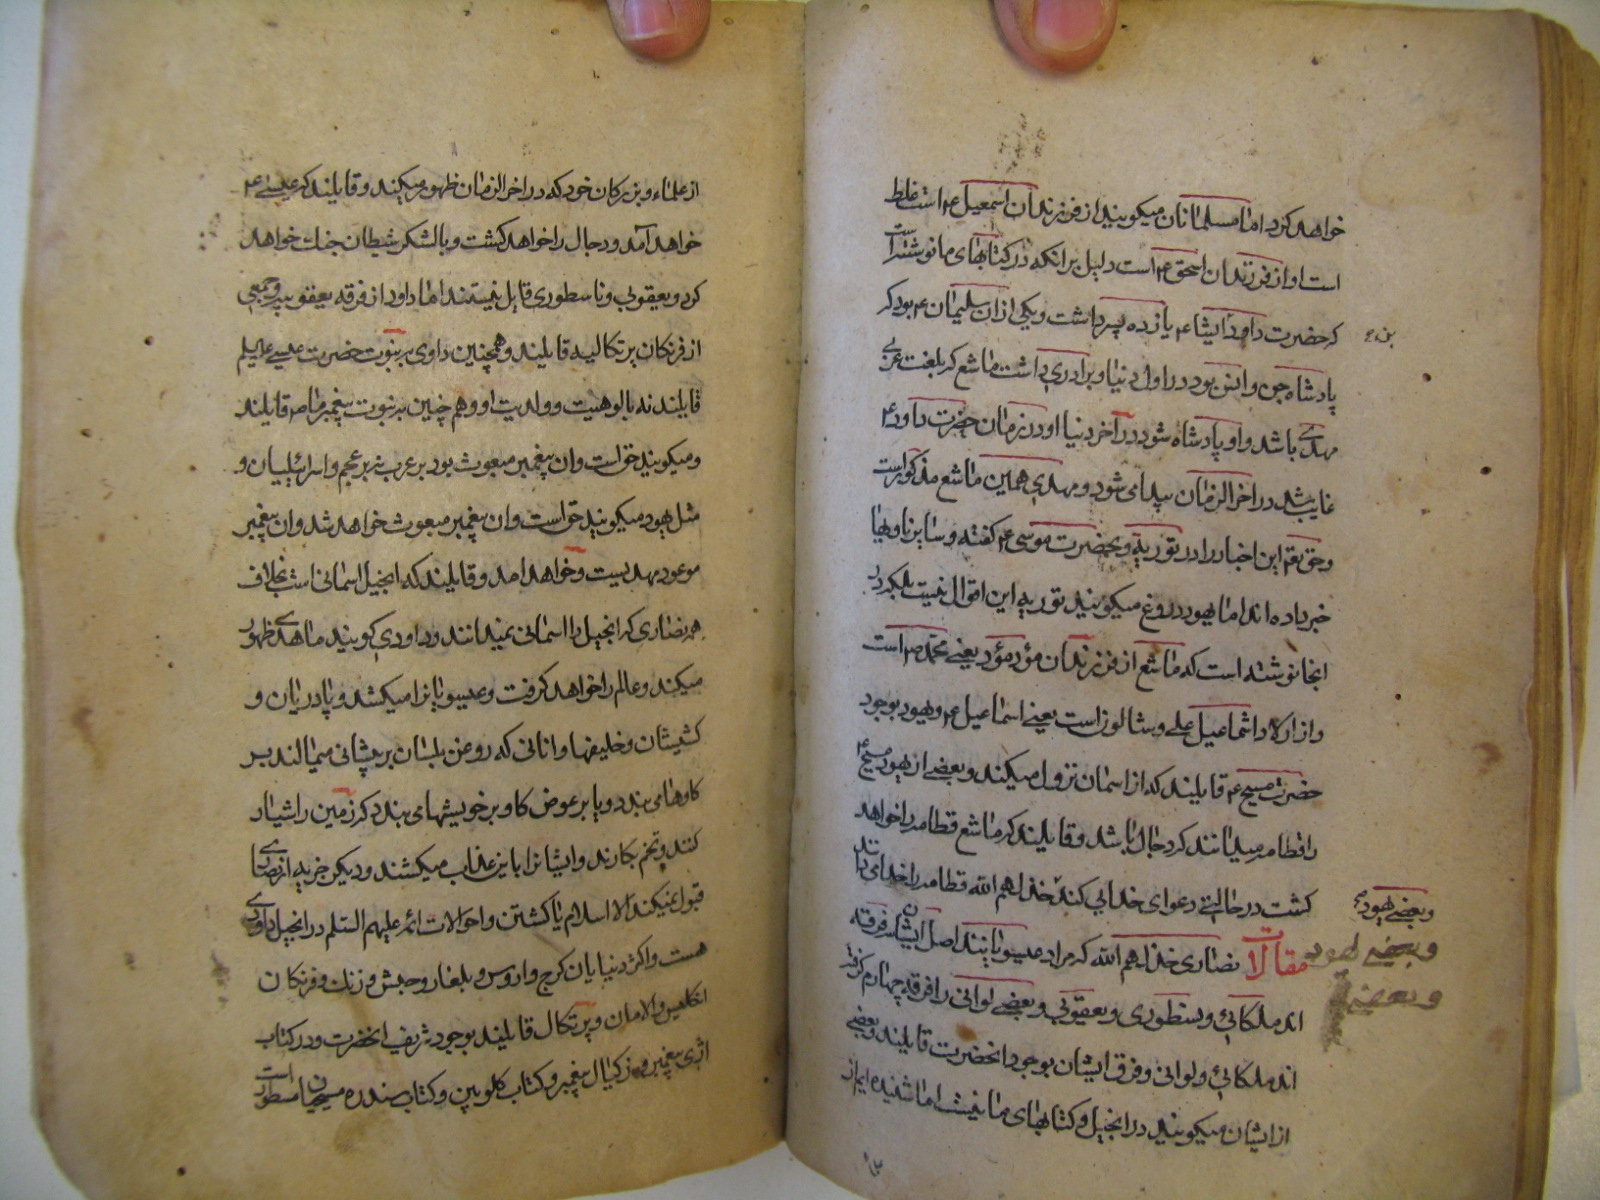 خواهد کرد اما مسلمانان میکویند از فرزندان اسمعیل ع است غلط
است او از فرزندان اسحق ع است دلیل بر انکه در کتابهای ما نوشته است
که حضرت داود ایشاء یازده پسر داشت و یکی از ان سلیمان ع بود که
پادشاه جن و انس بود در اول دنیا و برادری داشت ماشع که بلغت عربی
مهدی باشد و او پادشاه شود در آخر دنیا او در زمان حضرت داود ع
غایب شد در اخر الزمان پیدا می شود و مهدی همین ماشع مذکور است
و حق تعم این اخبار را در توریة و بحضرت موسی ع کفته و سایر ناویها
خبر داده اند اما یهود دروغ میکویند توریه این اقوال نیست بلکه در
انجا نوشته است که ماشع از فرزندان مؤد مؤد یعنی محمد ص است
و از اولاد اشماعیل علی وشالوز است یعنی اسماعیل ع و یهود بوجود
حضرت مسیح ع قایلند که از اسمان نزول میکند و بعضی از یهود مسیح ع
را قطامه میدانند که دجال باشد و قایلند که ماشع قطامه را خواهد
کشت در حالیتی دعوای خدایی کند خذلهم الله قطامه را خدا می دانند
و بعضی یهود
و بعضی یهود
و بعضی
مقالات نصاری خذلهم الله که مراد عیسویانند اصل ایشان سه فرقه
اند ملکائی و نسطوری و یعقوبی و بعضی لوانی را فرقه چهارم کرفته
اند ملکائی و لوانی و فرق ایشان بوجود انحضرت قایلند و بعضی
از ایشان میکویند در انجیل و کتابهای ما نیست اما شنیده ایم از
از علماء و بزرکان خود که در اخر الزمان ظهور میکند و قایلند که عیسی ع
خواهد آمد و دجال را خواهد کشت و با لشکر شیطان جنك خواهد
کرد و یعقوبی و ناسطوری قایل نیستند اما داود از فرقه یعقوبیه و جمعی
از فرنکان پرتکالیه قایلند و همچنین داوی بر نبوت حضرت عیسی علیلم
قایلند نه بالوهیت و ولدیت او و هم چنین بر نبوت پیغمبر ما ص قایلند
و میکویند حق است و ان پیغمبر مبعوث بود بر عرب نه بر عجم و اسرائیلیان و
مثل یهود میکویند حق است و ان پیغمبر مبعوث خواهد شد و ان پیغمبر
موعود مهدیست و خواهد امد و قایلند که انجیل اسمانی است بخلاف
همه نصاری که انجیل را اسمانی نمیدانند و داودی کویند ماهدی ظهور
میکند و عالم را خواهد کرفت و عیسویانرا میکشد و پادریان و
کشیشان و خلیفها و انانی که روغن بلسان بر پیشانی میمالند بر
کاوها می بندد و یا بر عوض کاو بر خویشها می بندد که زمین را شیار
کنند و تخم بکارند و ایشانرا باین عذاب میکشند و دیکر جزیه از نصاری
قبول نمیکند الا اسلام یا کشتن و احوالات ائمه علیهم السلم در انجیل داودی
هست و اکثر دنیایان کرج و اروس و بلغار و حبش و زنك و فرنکان
انکلیس و الامان و پرتکال قایلند بوجود شریف انحضرت و در کتاب
اثری پیغمبر و زکیال پیغمبر و کتاب کلوبین و کتاب صندره مسیحیان مسطور است